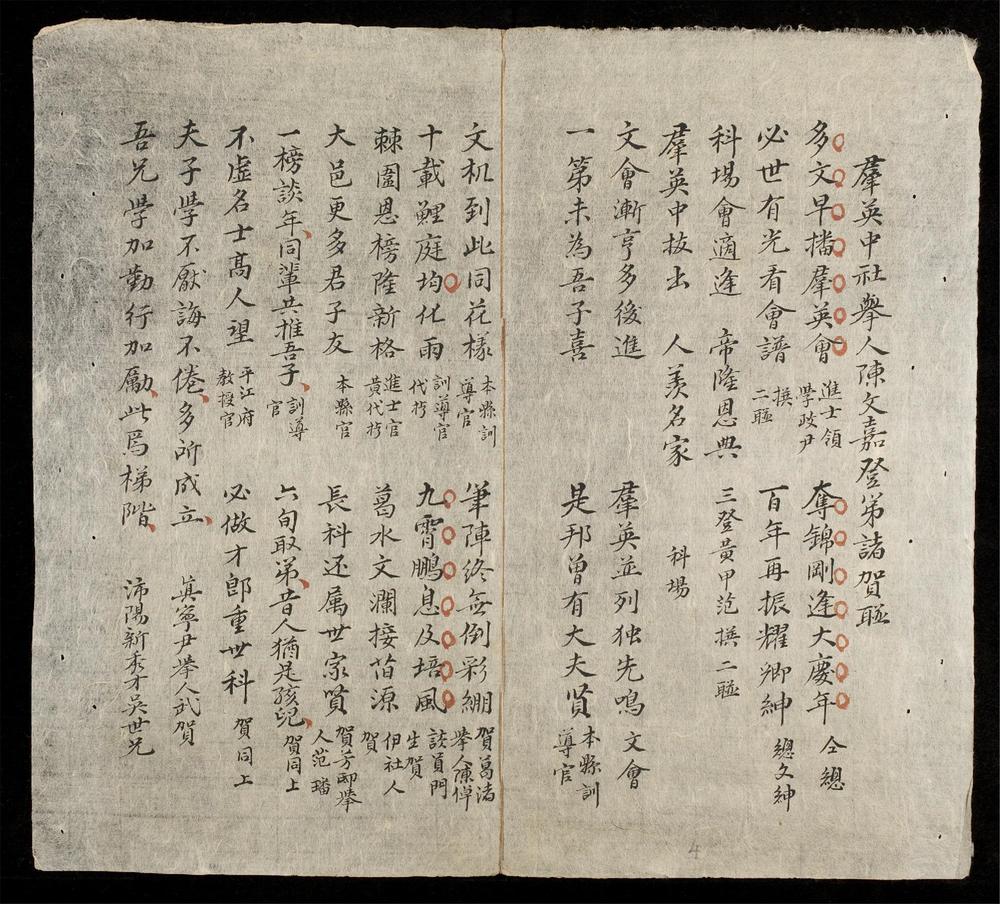 羣英中社舉人陳文嘉登第諸賀聮
多文早播羣英會 進士領學歧尹撰二聮 奪錦剛逢大慶年 仝總
必世有光看會譜 百年再振耀鄉紳 總文紳
科場會適逢 帝隆恩典 三登黃甲范撰二聮
羣英中拔出 人羡名家 科場
文會漸亨多後進 羣英並列独先鳴 文會
一第未為吾子喜 是邦曾有大夫賢 本縣訓導官
文机到此同花樣 本縣訓導官 筆陣終無倒彩綳 賀葛渚舉人陳倬
十載鯉庭均化雨 訓導官代拧 九霄鵬息及培風 談員門生賀
棘圍恩榜隆新格 進士官黃代拧 葛水文瀾接笛源 伊社人賀
大邑更多君子友 本縣官 長科还属世家賢 賀芳邸舉人范璠
一榜談年同輩共推吾子 訓導官 六旬取第昔人猶是孩兒 賀同上
不虚名士髙人望 平江府教授官 必做才郎重世科 賀同上
夫子學不厭誨不倦多所成立 真寧尹舉人武賀
吾兄學加勤行加勵此爲梯階 沛陽新秀才吴世兄
4